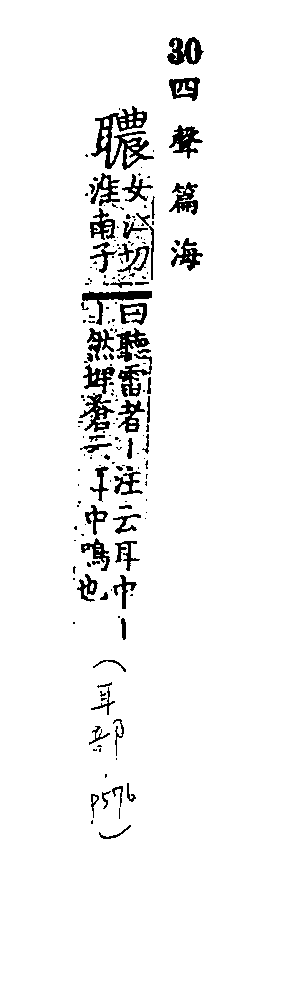 30四聲篇海
⿰耳農
女江切
淮南子
曰聽雷者丨注云耳中丨
丨然埤蒼云耳中鳴也
（耳部 P576）